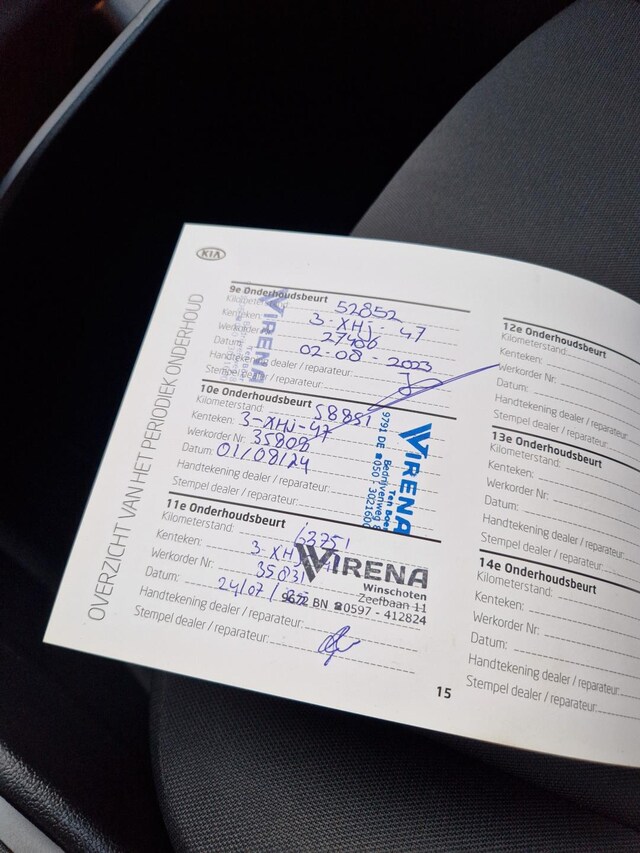 KIA
OVERZICHT VAN HET PERIODIEK ONDERHOUD
9e Onderhoudsbeurt
Kilometerstand: 52852
Kenteken: 3-XHJ-47
Werkorder 27406
Datum: 02-08-2023
Handtekening dealer / reparateur:
Stempel dealer / reparateur:
VIRENA
10e Onderhoudsbeurt
Kilometerstand: 58851
Kenteken: 3-XHJ-47
Werkorder Nr: 35808
Datum: 01/08/24
Handtekening dealer / reparateur:
Stempel dealer / reparateur:
VIRENA
Ten Boer
Bedrijvenweg 8
9791 DE ☎050 - 3021600
11e Onderhoudsbeurt
Kilometerstand: 63751
Kenteken: 3-XHJ
Werkorder Nr:
Datum: 24/07/
Handtekening dealer / reparateur:
Stempel dealer / reparateur:
VIRENA
Winschoten
Zeefbaan 11
9672 BN ☎0597 - 412824
12e Onderhoudsbeurt
Kilometerstand:
Kenteken:
Werkorder Nr:
Datum:
Handtekening dealer / reparateur:
Stempel dealer / reparateur:
13e Onderhoudsbeurt
Kilometerstand:
Kenteken:
Werkorder Nr:
Datum:
Handtekening dealer / reparateur:
Stempel dealer / reparateur:
14e Onderhoudsbeurt
Kilometerstand:
Kenteken:
Werkorder Nr:
Datum:
Handtekening dealer / reparateur:
Stempel dealer / reparateur:
15